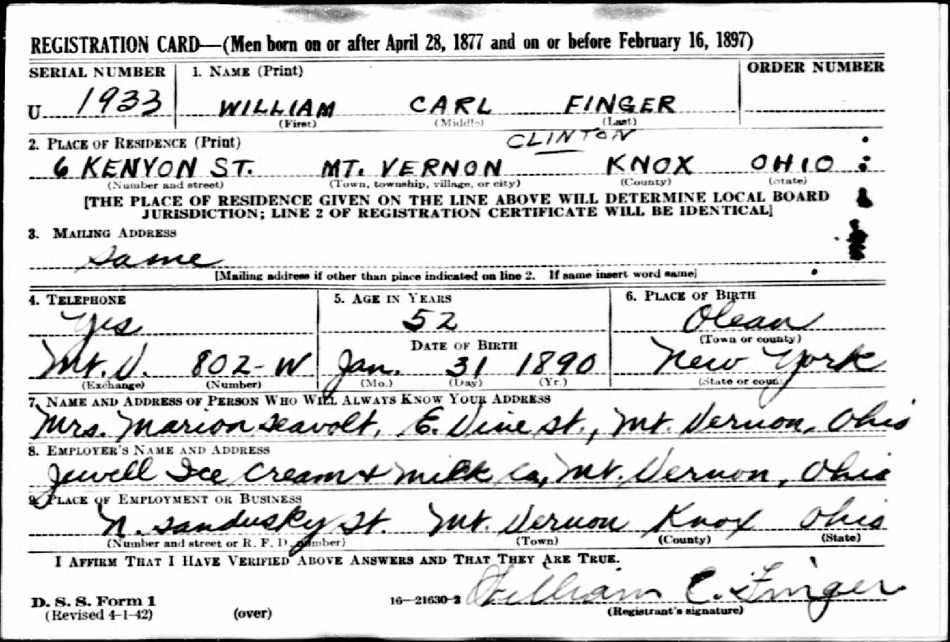 REGISTRATION CARD—(Men born on or after April 28, 1877 and on or before February 16, 1897)
SERIAL NUMBER 1. NAME (Print) ORDER NUMBER
U 1933 WILLIAM CARL FINGER
(First) (Middle) (Last)
2. PLACE OF RESIDENCE (Print) CLINTON
6 KENYON ST. MT. VERNON KNOX OHIO
(Number and street) (Town, township, village, or city) (County) (State)
[THE PLACE OF RESIDENCE GIVEN ON THE LINE ABOVE WILL DETERMINE LOCAL BOARD
JURISDICTION; LINE 2 OF REGISTRATION CERTIFICATE WILL BE IDENTICAL]
3. MAILING ADDRESS
Same
[Mailing address if other than place indicated on line 2. If same insert word same]
4. TELEPHONE 5. AGE IN YEARS 6. PLACE OF BIRTH
Yes 52 Olean
DATE OF BIRTH (Town or county)
Mt. V. 802-W Jan. 31 1890 New York
(Exchange) (Number) (Mo.) (Day) (Yr.) (State or country)
7. NAME AND ADDRESS OF PERSON WHO WILL ALWAYS KNOW YOUR ADDRESS
Mrs. Marion Seavolt, E. Vine St., Mt. Vernon, Ohio
8. EMPLOYER'S NAME AND ADDRESS
Jewell Ice Cream & Milk Co, Mt. Vernon, Ohio
9. PLACE OF EMPLOYMENT OR BUSINESS
N. Sandusky St. Mt. Vernon Knox Ohio
(Number and street or R. F. D. number) (Town) (County) (State)
I AFFIRM THAT I HAVE VERIFIED ABOVE ANSWERS AND THAT THEY ARE TRUE.
William C. Finger
D. S. S. Form 1 16—21630-2 (Registrant's signature)
(Revised 4-1-42) (over)